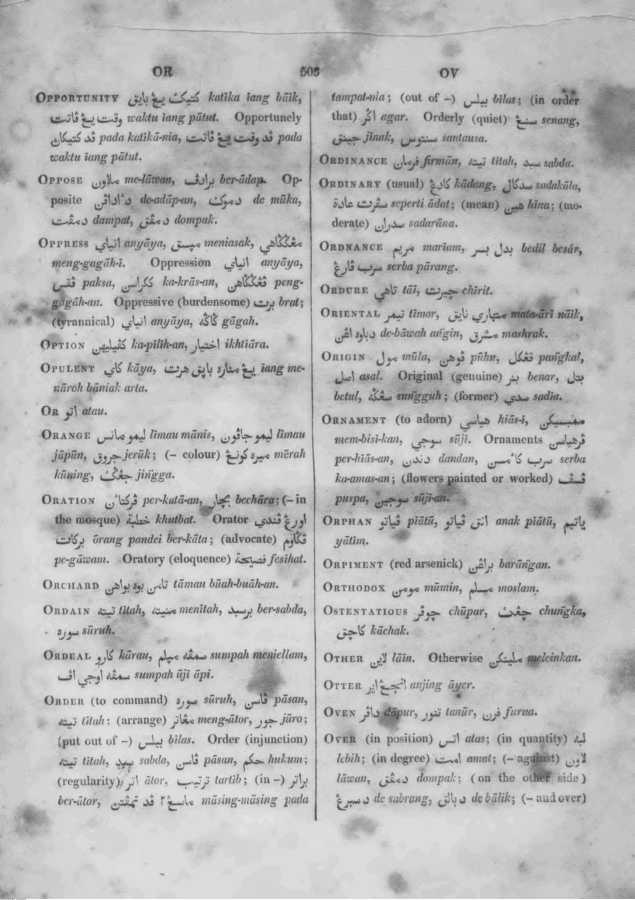 OR
503
OV
OPPORTUNITY كتيك يڠ بايق katīka iang bāik,
وقت يڠ ڤاتت waktu iang pātut. Opportunely
pada katīkā-nia, قد وقت يڠ ڤاتت pada
waktu iang pātut.
OPPOSE ملاون me-lāwan, برادڤ ber-ādap. Op-
posite de-adāp-an, دموک de mūka,
دمڤت dampat, دمڤق dompak.
OPPRESS انياي anyāya, meniasak,
meng-gagāh-i. Oppression انياي anyāya,
paksa, ککراسن ka-krās-an, peng-
gāgāh-an. Oppressive (burdensome) برت brat;
(tyrannical) انياي anyāya, ڬاڬه gāgah.
OPTION ka-pilīh-an, اختيار ikhtiāra.
OPULENT کاي kāya, iang me-
nāroh bāniak arta.
OR اتو atau.
ORANGE ليمو مانس līmau mānis, ليمو جاڤون līmau
jāpūn, جروق jerūk; (– colour) ميره کونڠ mērah
kūning, جڠݢ jingga.
ORATION per-katā-an, بچار bechāra; (– in
the mosque) خطبة khutbat. Orator اورڠ ڤندي
ōrang pandei ber-kāta; (advocate)
pe-gāwam. Oratory (eloquence) فصيحة fesīhat.
ORCHARD تامن بوه بواهن tāman būah-buāh-an.
ORDAIN تيته tītah, منيته menītah, برسبد ber-sabda,
سوره sūruh.
ORDEAL کارو kārau, سمڤه مڽلم sumpah meniellam,
سمڤه اوجي اڤ sumpah ūji āpi.
ORDER (to command) سوره sūruh, ڤاسن pāsan,
تيته tītah: (arrange) مڠاتر meng-ātor, جور jūra;
(put out of –) بيلس bīlas. Order (injunction)
تيته tītah, سبد sabda, ڤاسن pāsan, حکم hukum;
(regularity) اتر ātor, ترتيب tartīb; (in –) براتر
ber-ātor, ماسڠ٢ قد māsing-māsing pada
tampat-nia; (out of –) بيلس bīlas; (in order
that) اݢر agar. Orderly (quiet) سنڠ senang,
جينق jīnak, سنتوس santausa.
ORDINANCE فرمان firmān, تيته tītah, سبد sabda.
ORDINARY (usual) کادڠ kādang, سدکال sadakāla,
سڤرت عادة seperti ādat; (mean) هين hīna; (mo-
derate) سدران sadarāna.
ORDNANCE مريم mariam, بدل بسر bedil besār,
سرب ڤارڠ serba pārang.
ORDURE تاهي tāī, چيرت chīrit.
ORIENTAL تيمر tīmor, متهاري نايق mata-ārī nāīk,
دباوه اڠن de-bāwah angin, مشرق mashrak.
ORIGIN مول mūla, ڤوهن pūhn, ڤڠکل pangkal,
اصل asal. Original (genuine) بنر benar,
بتل betul, سڠݢه sungguh; (former) سدي sadia.
ORNAMENT (to adorn) هياسي hiās-i,
mem-bisi-kan, سوجي sūji. Ornaments ڤرهياسن
per-hiās-an, دندن dandan, serba
ka-amas-an; (flowers painted or worked)
puspa, سوجين sūji-an.
ORPHAN ڤياتو piātū, انق ڤياتو anak piātū, يتيم
yātīm.
ORPIMENT (red arsenick) براڠن barāngan.
ORTHODOX مومن mūmin, مسلم moslam.
OSTENTATIOUS چوڤر chūpar, چڠک chungka,
کاچق kāchak.
OTHER لاين lāin. Otherwise ملينکن meleinkan.
OTTER انجڠ اير anjing āyer.
OVEN داڤر dāpur, تنور tanūr, فرن furna.
OVER (in position) اتس atas; (in quantity) لبه
lebih; (in degree) امت amat; (– against) لاون
lāwan, دمڤق dompak; (on the other side)
دسبرڠ de sabrang, دبالق de bālik; (– and over)